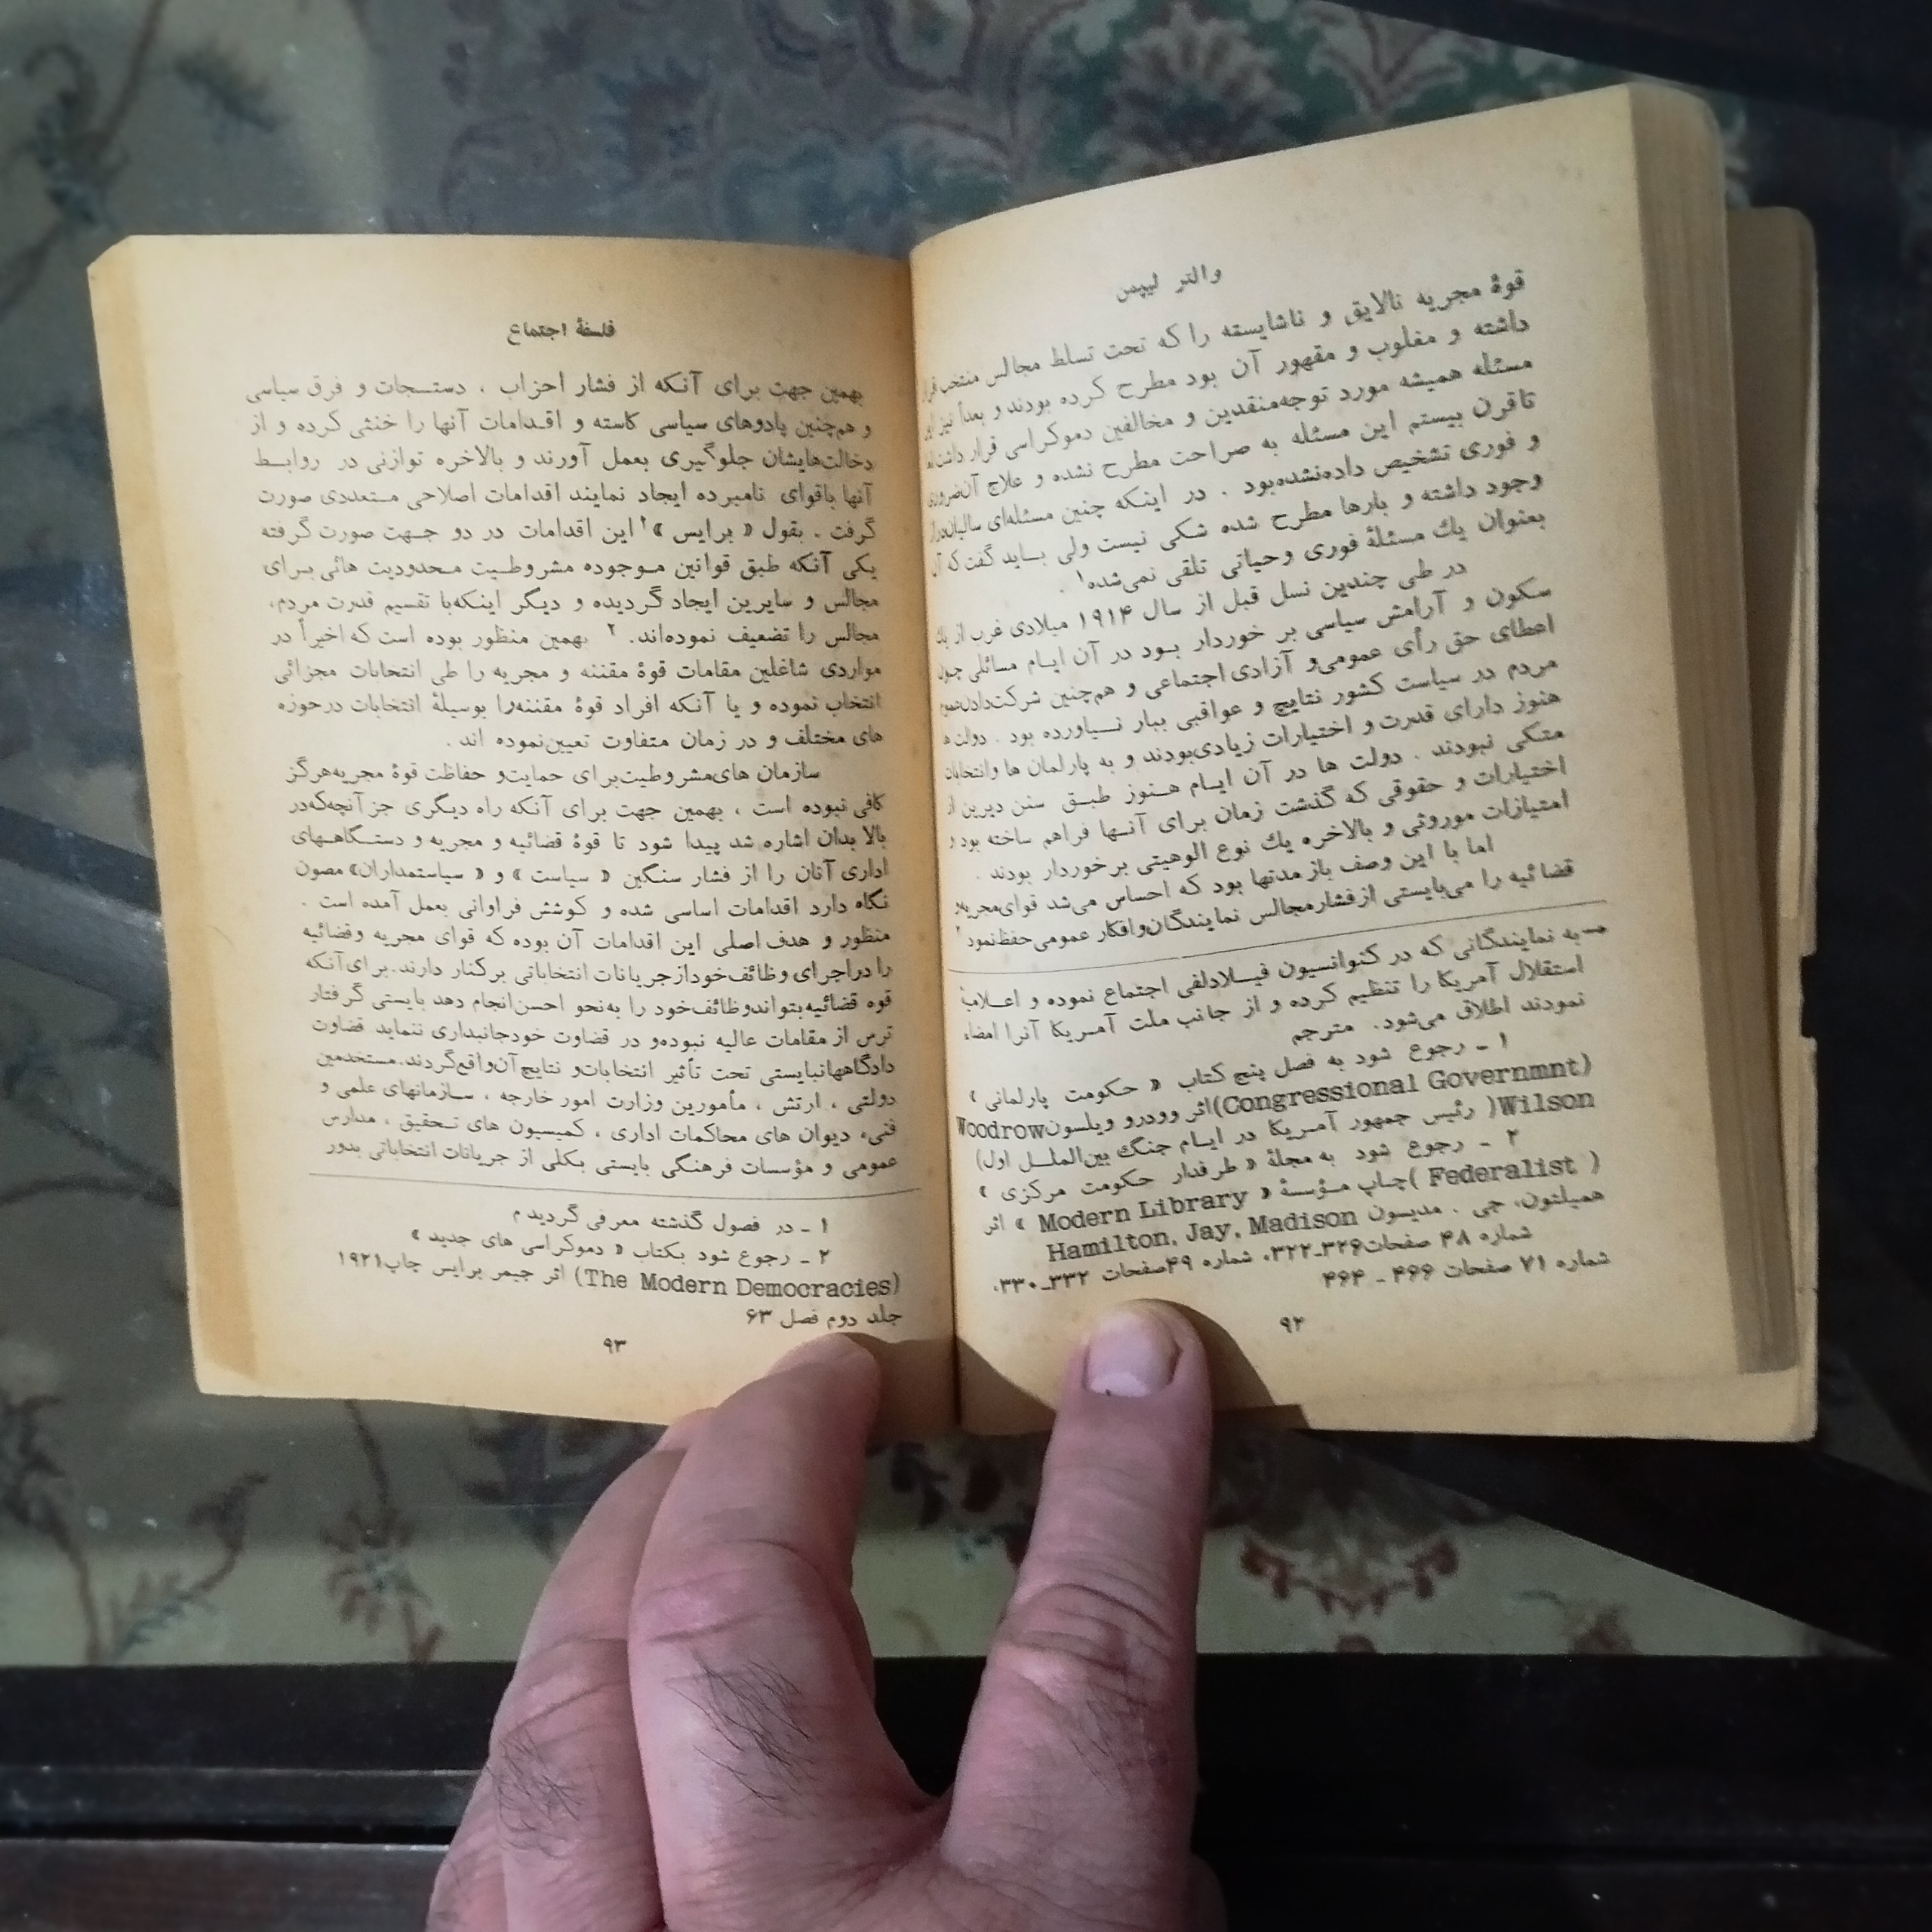 والتر لیپمن
قوهٔ مجریه نالایق و ناشایسته را که تحت تسلط مجالس منتخب قرار
داشته و مغلوب و مقهور آن بود مطرح کرده بودند و بعداً نیز این
مسئله همیشه مورد توجه‌منقدین و مخالفین دموکراسی قرار داشت اما
تاقرن بیستم این مسئله به صراحت مطرح نشده و علاج آن‌ضروری
و فوری تشخیص داده‌نشده‌بود . در اینکه چنین مسئله‌ای سالیان‌دراز
وجود داشته و بارها مطرح شده شکی نیست ولی بـاید گفت که آن
بعنوان یك مسئلهٔ فوری وحیاتی تلقی نمی‌شده۱ .
در طی چندین نسل قبل از سال ۱۹۱۴ میلادی غرب از یك
سکون و آرامش سیاسی بر خوردار بـود در آن ایـام مسائلی چون
اعطای حق رأی عمومی‌و آزادی اجتماعی و هم‌چنین شرکت‌دادن‌عموم
مردم در سیاست کشور نتایج و عواقبی ببار نـیاورده بود . دولت‌ها
هنوز دارای قدرت و اختیارات زیادی‌بودند و به پارلمان ها وانتخابات
متکی نبودند . دولت ها در آن ایـام هـنوز طبـق سنن دیرین از
اختیارات و حقوقی که گذشت زمان برای آنـها فراهم ساخته بود و
امتیازات موروثی و بالاخره یك نوع الوهیتی برخوردار بودند .
اما با این وصف باز مدتها بود که احساس می‌شد قوای‌مجریه‌و
قضائیه را می‌بایستی ازفشارمجالس نمایندگان‌وافکار عمومی‌حفظ‌نمود۲
به نمایندگانی که در کنوانسیون فیـلادلفی اجتماع نموده و اعـلامیهٔ
استقلال آمریکا را تنظیم کرده و از جانب ملت آمـریکا آنرا امضاء
نمودند اطلاق می‌شود. مترجم
۱ ـ رجوع شود به فصل پنج کتاب « حکومت پارلمانی »
(Congressional Governmnt)اثر وودرو ویلسون‌Woodrow
Wilson( رئیس جمهور آمـریکا در ایـام جنگ بین‌الملـل اول)
۲ ـ رجوع شود به مجلهٔ « طرفدار حکومت مرکزی »
( Federalist )چاپ مـؤسسهٔ « Modern Library » اثر
همیلتون، جی . مدیسون Hamilton, Jay, Madison
شماره ۴۸ صفحات۳۲۶ـ۳۲۲، شماره ۴۹صفحات ۳۳۲ـ۳۳۰،
شماره ۷۱ صفحات ۴۶۶ ـ ۴۶۴
۹۲
فلسفهٔ اجتماع
بهمین جهت برای آنکه از فشار احزاب ، دستـجات و فرق سیاسی
و هم‌چنین پادوهای سیاسی کاسته و اقـدامات آنها را خنثی کرده و از
دخالت‌هایشان جلوگیری بعمل آورند و بالاخره توازنی در روابـط
آنها باقوای نامبرده ایجاد نمایند اقدامات اصلاحی مـتعددی صورت
گرفت . بقول « برایس »۱ این اقدامات در دو جـهت صورت گرفته
یکی آنکه طبق قوانین مـوجوده مشروطـیت مـحدودیت هائی بـرای
مجالس و سایرین ایجاد گردیده و دیگر اینکه‌با تقسیم قدرت مردم،
مجالس را تضعیف نموده‌اند. ۲ بهمین منظور بوده است که اخیراً در
مواردی شاغلین مقامات قوهٔ مقننه و مجریه را طی انتخابات مجزائی
انتخاب نموده و یا آنکه افراد قوهٔ مقننه‌را بوسیلهٔ انتخابات درحوزه
های مختلف و در زمان متفاوت تعیین‌نموده اند .
سازمان های‌مشروطیت‌برای حمایت‌و حفاظت قوهٔ مجریه‌هرگز
کافی نبوده است ، بهمین جهت برای آنکه راه دیـگری جز آنچه‌که‌در
بالا بدان اشاره شد پیدا شود تا قوهٔ قضائیه و مجریه و دستـگاهـهای
اداری آنان را از فشار سنگین « سیاست » و « سیاستمداران» مصون
نگاه دارد اقدامات اساسی شده و کوشش فراوانی بعمل آمده است .
منظور و هدف اصلی این اقدامات آن بوده که قوای مجریه وقضائیه
را دراجرای وظائف‌خودازجریانات انتخاباتی برکنار دارند.برای‌آنکه
قوه قضائیه‌بتواندوظائف‌خود را به‌نحو احسن‌انجام دهد بایستی گرفتار
ترس از مقامات عالیه نبوده‌و در قضاوت خودجانبداری ننماید قضاوت
دادگاههانبایستی تحت تأثیر انتخابات‌و نتایج آن‌واقع‌گردند.مستخدمین
دولتی ، ارتش ، مأمورین وزارت امور خارجه ، سـازمانهای علمی و
فنی، دیوان های محاکمات اداری ، کمیسیون های تـحقیق ، مدارس
عمومی و مؤسسات فرهنگی بایستی بکلی از جریانات انتخاباتی بدور
۱ ـ در فصول گذشته معرفی گردید م
۲ ـ رجوع شود بکتاب « دموکراسی های جدید »
(The Modern Democracies) اثر جیمر برایس چاپ۱۹۲۱
جلد دوم فصل ۶۳
۹۳